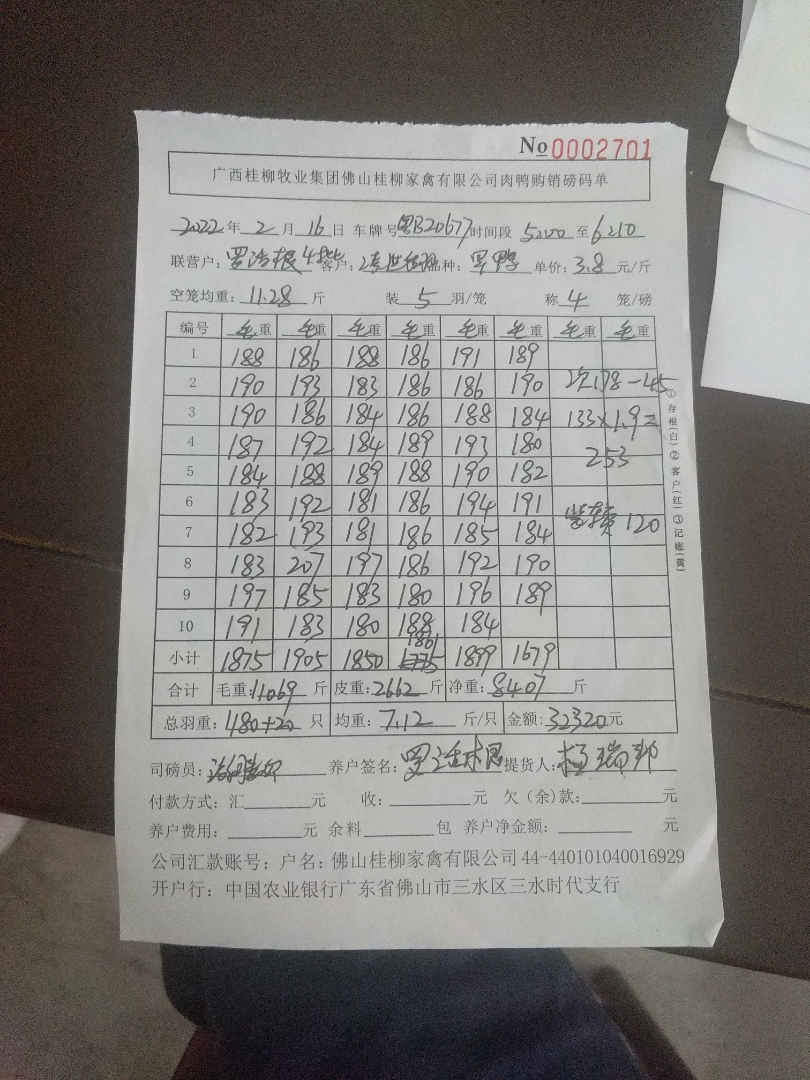 No 0002701
广西桂柳牧业集团佛山桂柳家禽有限公司肉鸭购销磅码单
2022年 2月 16日 车牌号粤B20677时间段 5:00 至6:10
联营户: 客户: 品种: 黑鸭 单价: 3.8 元/斤
空笼均重: 11.28 斤 装 5 羽/笼 称 4 笼/磅
编号 毛重 毛重 毛重 毛重 毛重 毛重 毛重 毛重
1 188 186 188 186 191 189
2 190 193 183 186 186 190 次178-45
3 190 186 184 186 188 184 133×1.9=
4 187 192 184 189 193 180 253
5 184 188 189 188 190 182
6 183 192 181 186 194 191
7 182 193 181 186 185 184 120
8 183 207 197 186 192 190
9 197 185 183 180 196 189
10 191 183 180 188 184
小计 1875 1905 1850 1861 1899 1679
合计 毛重:11069 斤 皮重:2662 斤 净重:8407 斤
总羽重: 1180+20 只 均重: 7.12 斤/只 金额: 32320元
司磅员: 养户签名: 提货人: 杨瑞邦
付款方式: 汇 元 收: 元 欠(余)款: 元
养户费用: 元 余料 包 养户净金额: 元
公司汇款账号: 户名: 佛山桂柳家禽有限公司 44-440101040016929
开户行: 中国农业银行广东省佛山市三水区三水时代支行
①存根(白)②客户(红)③记账(黄)